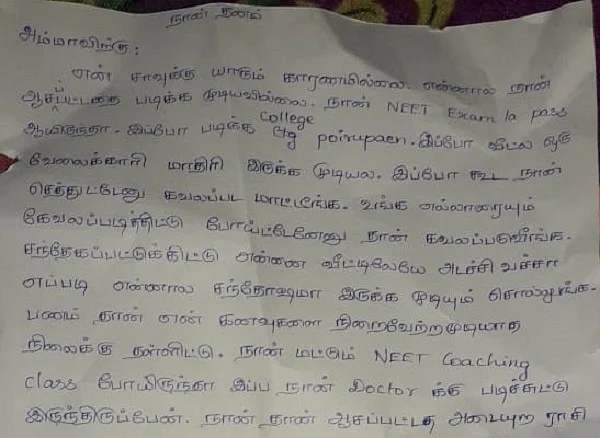 நான் தனம்
அம்மாவிற்கு :
என் சாவுக்கு யாரும் காரணமில்லை. என்னால நான்
ஆசப்பட்டதை படிக்க முடியவில்லை. நான் NEET Exam la pass
ஆயிருந்தா. இப்போ படிக்க College poirupaen. இப்போ வீட்ல ஒரு
வேலைக்காரி மாதிரி இருக்க முடியல. இப்போ கூட நான்
செத்துட்டேனு கவலப்பட மாட்டீங்க. உங்க எல்லாரையும்
கேவலப்படித்திட்டு போய்ட்டேனேனு தான் கவலப்படுவீங்க.
சந்தேகப்பட்டுக்கிட்டு என்னை வீட்டிலேயே அடச்சி வச்சா
எப்படி என்னால சந்தோஷமா இருக்க முடியும் சொல்லுங்க.
பணம் தான் என் கனவுகளை நிறைவேற்றமுடியாத
நிலைக்கு தள்ளிட்டு. நான் மட்டும் NEET Coaching
Class போயிருந்தா இப்ப நான் Doctor க்கு படிச்சுட்டு
இருந்திருப்பேன். நான் தான் ஆசப்பட்டத அடையுற ராசி